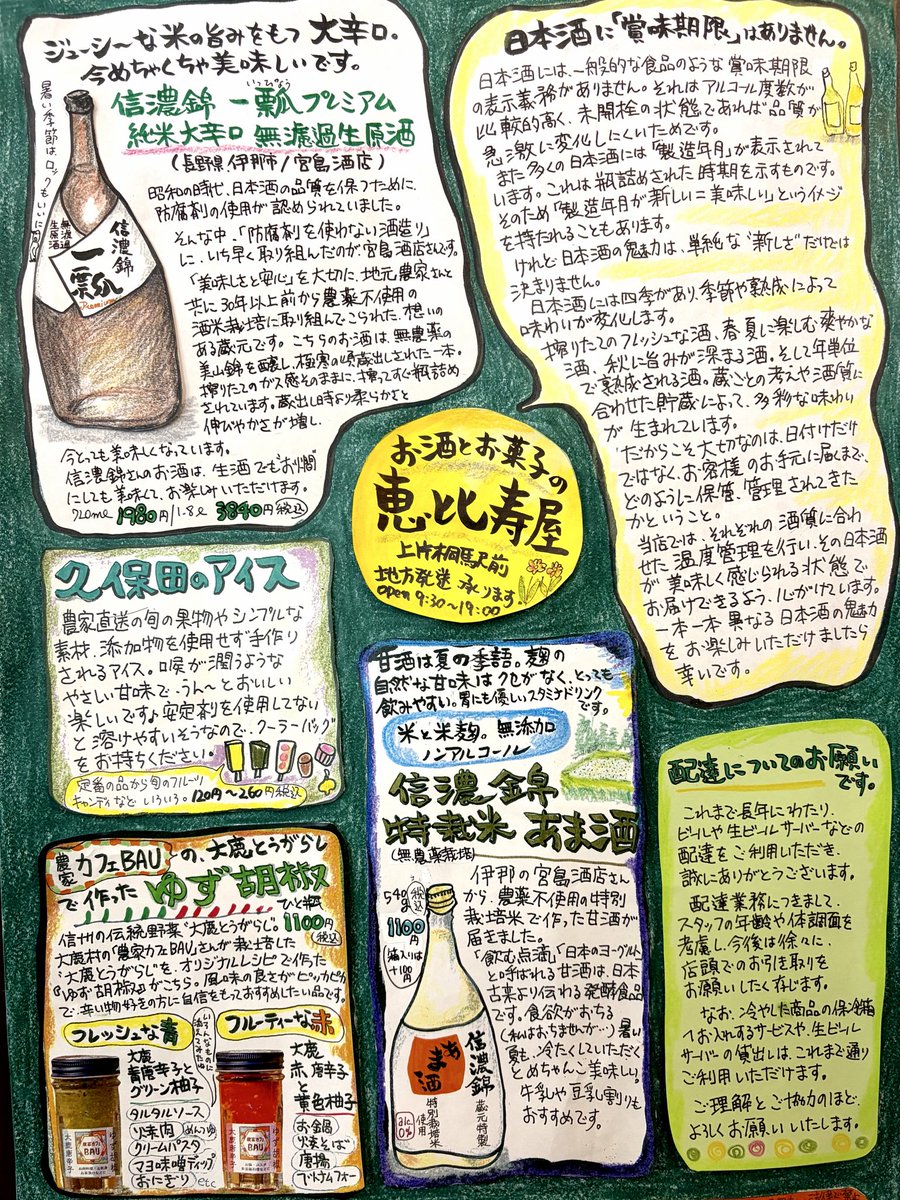 ジューシーな米の旨みをもつ大辛口。
今めちゃくちゃ美味しいです。
暑い季節はロックもいい!
いっぴょう
信濃錦 一瓢プレミアム
純米大辛口 無濾過生原酒
(長野県伊那市/宮島酒店)
昭和の時代、日本酒の品質を保つために、
防腐剤の使用が認められていました。
そんな中、「防腐剤を使わない酒造り」
に、いち早く取り組んだのが宮島酒店さんです。
「美味しさと安心」を大切に、地元農家さんと
共に30年以上前から農薬不使用の
酒米栽培に取り組んでこられた、想いの
ある蔵元です。こちらのお酒は、無農薬の
美山錦を醸し、極寒の候蔵出しされた一本。
搾りたてのガス感そのままに、搾ってすぐ瓶詰め
されています。蔵出し時より柔らかさと
伸びやかさが増し、
今とても美味しくなっています。
信濃錦さんのお酒は、生酒でも"お燗"
にしても美味しく、お楽しみいただけます。
720ml 1980円/1.8ℓ 3840円(税込)
無濾過
生原酒
信濃錦
一瓢
Premium
日本酒に「賞味期限」はありません。
日本酒には、一般的な食品のような賞味期限
の表示義務がありません。それはアルコール度数が
比較的高く、未開栓の状態であれば品質が
急激に変化しにくいためです。
また多くの日本酒には「製造年月」が表示されて
います。これは瓶詰めされた時期を示すものです。
そのため「製造年月が新しい=美味しい」というイメージ
を持たれることもあります。
けれど日本酒の魅力は、単純な"新しさ"だけでは
決まりません。
日本酒には四季があり、季節や熟成によって
味わいが変化します。
搾りたてのフレッシュな酒、春夏に楽しむ爽やかな
酒、秋に旨みが深まる酒。そして年単位
で熟成される酒。蔵ごとの考えや酒質に
合わせた貯蔵によって、多彩な味わい
が生まれています。
だからこそ大切なのは、日付けだけ
ではなく、お客様のお手元に届くまで、
どのように保管、管理されてきた
かということ。
当店では、それぞれの酒質に合わ
せた温度管理を行い、その日本酒
が美味しく感じられる状態で
お届けできるよう、心がけています。
一本一本異なる日本酒の魅力
をお楽しみいただけましたら
幸いです。
お酒とお菓子の
恵比寿屋
上片桐駅前
地方発送承ります。
open 9:30〜19:00
久保田のアイス
農家直送の旬の果物やシンプルな
素材、添加物を使用せず手作り
されるアイス。口候が潤うような
やさしい甘味で、うん〜とおいしい
楽しいです♪安定剤を使用してない
と溶けやすいそうなので、クーラーバッグ
をお持ちください。
定番の品から旬のフルーツ
キャンディなど いろいろ。120円〜260円(税込)
甘酒は夏の季語。麹の
自然な甘味はクセがなく、とっても
飲みやすい。胃にも優しいスタミナドリンク
です。
米と米麹。無添加
ノンアルコール
信濃錦
特栽米 あま酒
(無農薬栽培)
540g
1100円
税込
箱入りは
+100円
伊那の宮島酒店さん
から、農薬不使用の特別
栽培米で作った甘酒が
届きました。
「飲む点滴」「日本のヨーグルト」
と呼ばれる甘酒は、日本
古来より伝わる発酵食品
です。食欲がおちる
(私はおちませんが…)暑い
夏も、冷たくしていただく
とめちゃんこ美味しい。
牛乳や豆乳割りも
おすすめです。
信濃錦
あま酒
蔵元特製
特別栽培米
使用
alc.
0%
農家カフェBAUの、大鹿とうがらし
で作った ゆず胡椒
ひと瓶
1100円
(税込)
信州の伝統野菜"大鹿とうがらし"。
大鹿村の「農家カフェBAU」さんが栽培した
"大鹿とうがらし"を、オリジナルレシピで作った
『ゆず胡椒』がこちら。風味の良さがピッカピカ
で、辛い物好きの方に自信をもっておすすめしたい品です。
フレッシュな青
大鹿
青唐辛子と
グリーン柚子
タルタルソース
冷焼肉 めんつゆ
クリームパスタ
マヨ味噌ディップ
おにぎり etc
フルーティーな赤
大鹿
赤唐辛子
と
黄色柚子
お鍋
焼きそば
唐揚
ベトナムフォー
農家カフェ
BAU
大鹿唐辛子
農家カフェ
BAU
ゆず胡椒
大鹿唐辛子
配達についてのお願い
です。
これまで長年にわたり、
ビールや生ビールサーバーなどの
配達をご利用いただき、
誠にありがとうございます。
配達業務につきまして、
スタッフの年齢や体調面を
考慮し、今後は徐々に、
店頭でのお引き取りを
お願いしたく存じます。
なお、冷やした商品の保冷箱
へお入れするサービスや、生ビール
サーバーの貸出しは、これまで通り
ご利用いただけます。
ご理解とご協力のほど、
よろしくお願いいたします。